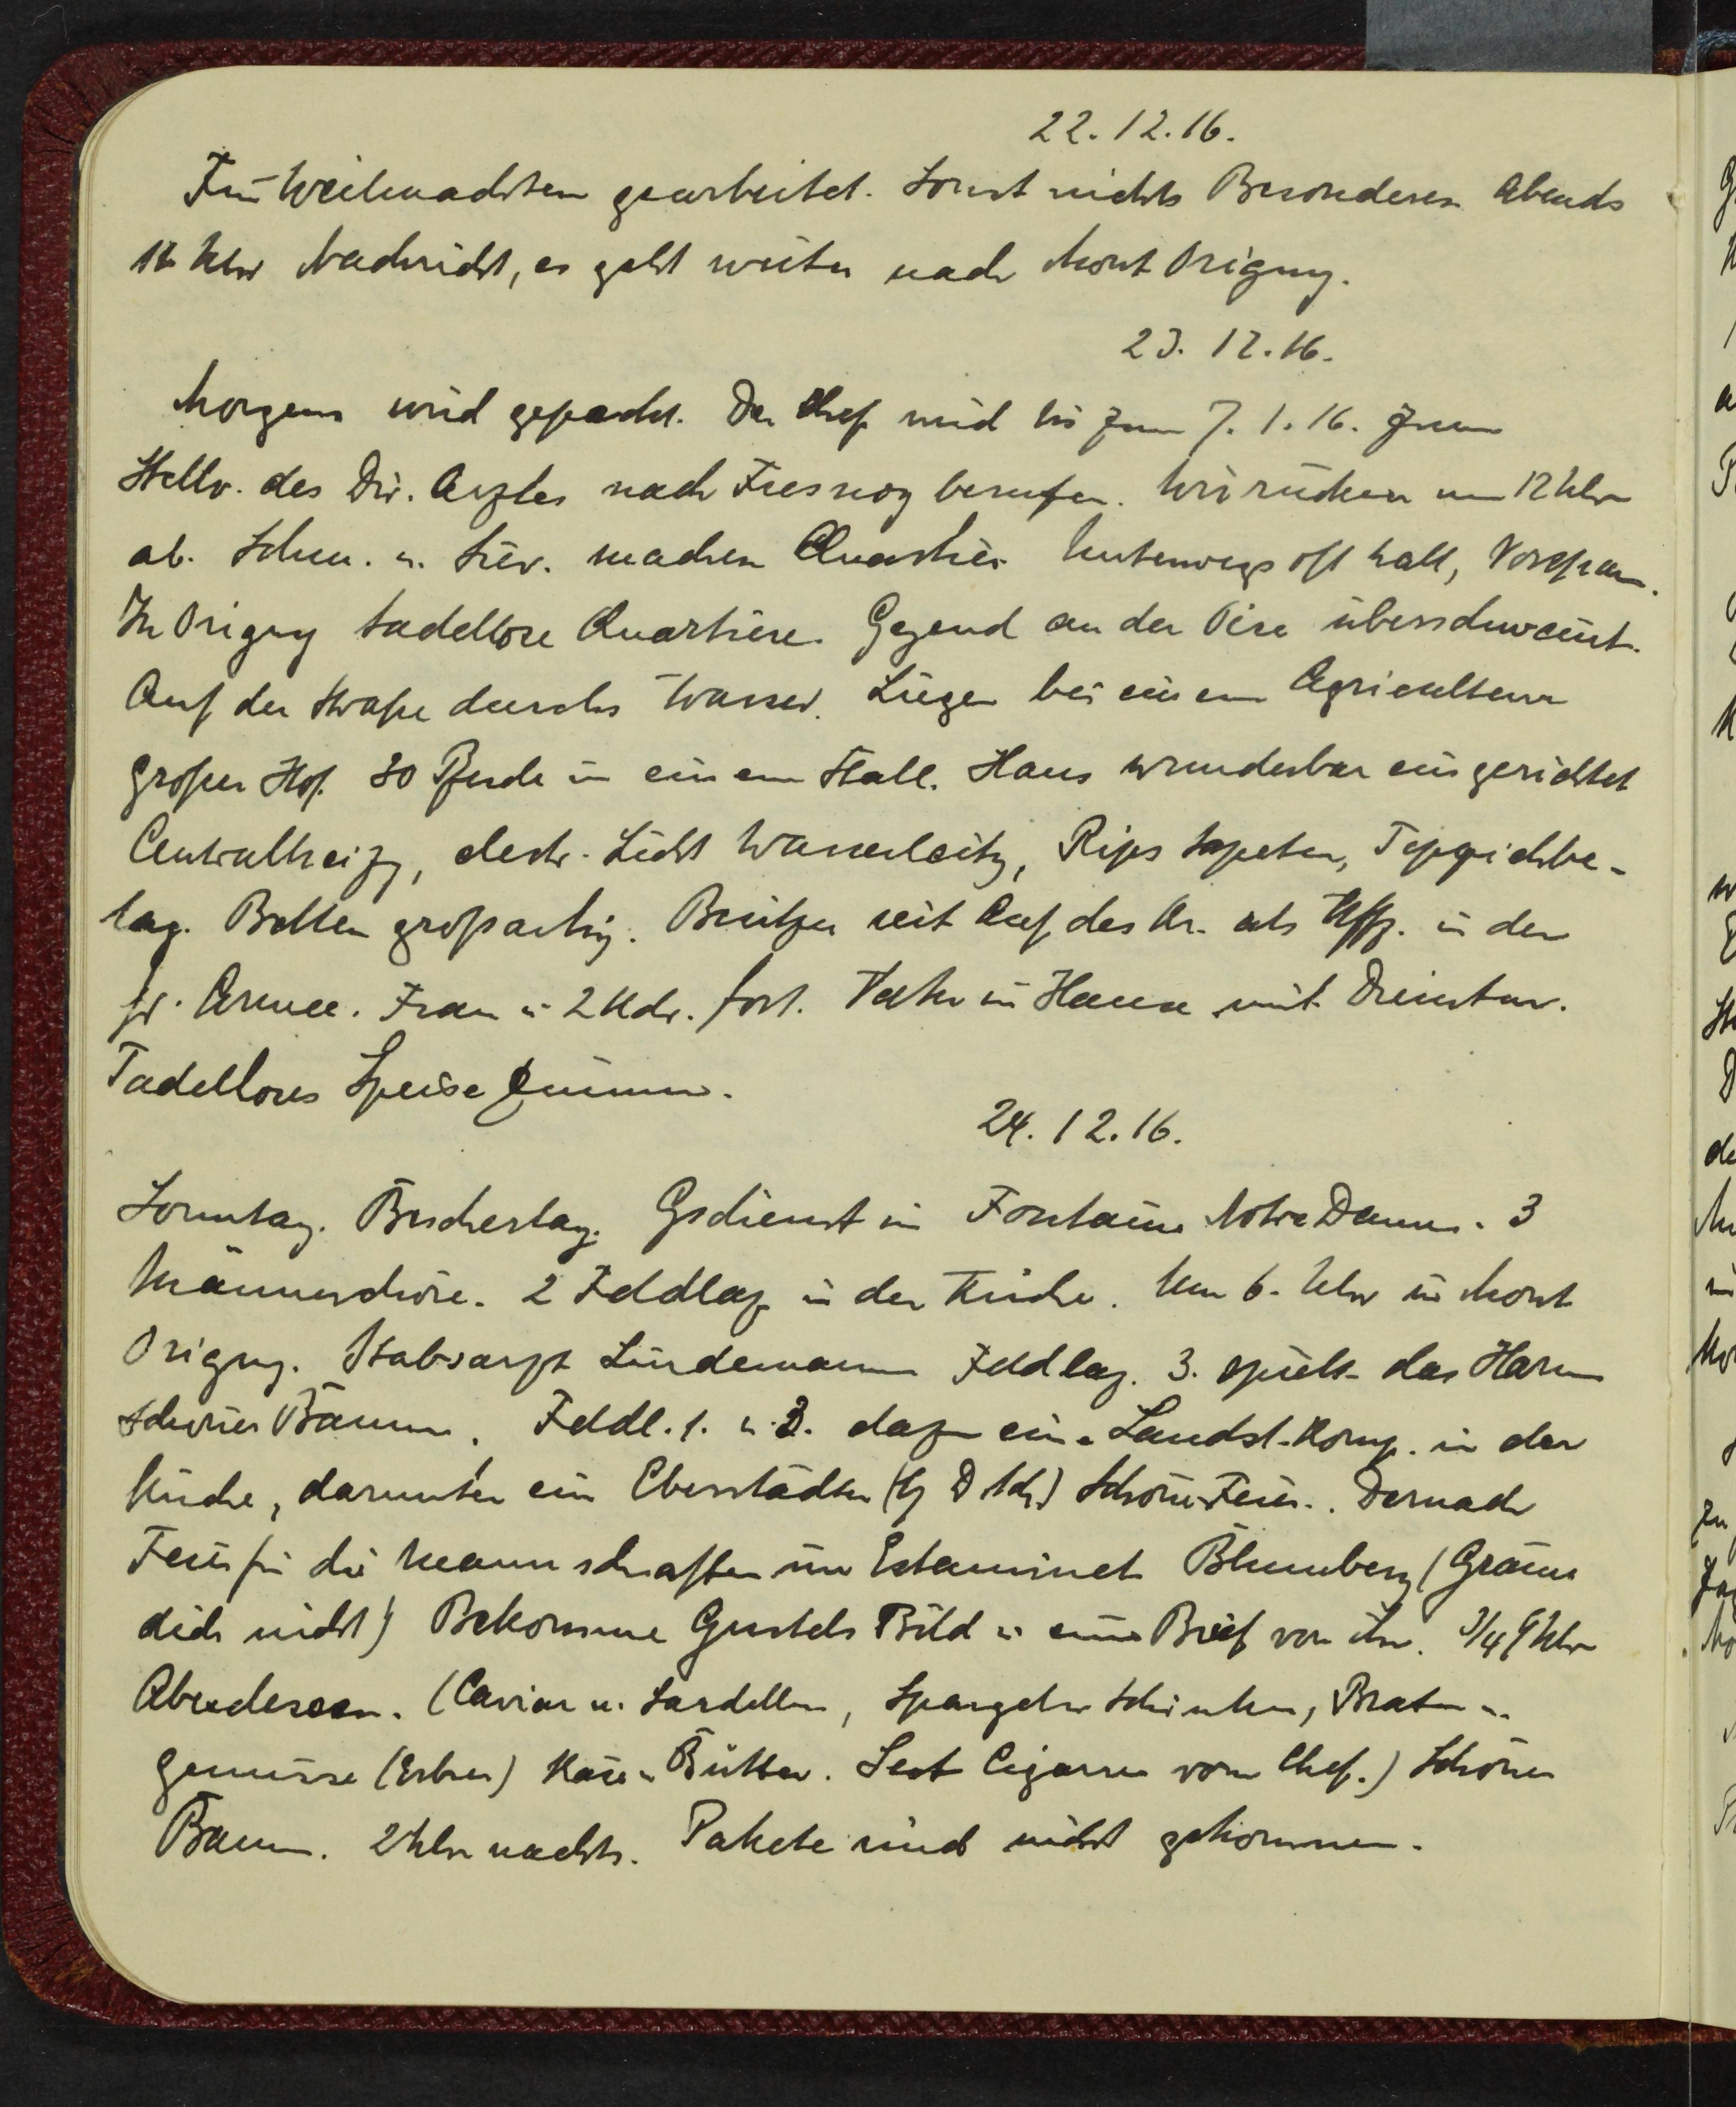 22.12.16.
Für Weihnachten gearbeitet. Sonst nichts Besonderes Abends
12 Uhr Nachricht, es geht weiter nach Mont Origny.
23. 12. 16.
Morgens wird gepackt. Der Chef wird bis zum 7. 1. 16. zum
Stellv. des Div. Arztes nach Fresnoy berufen. Wir rücken um 12 Uhr
ab. Schm. u. Siev. machen Quartier. Unterwegs oft halt, Vorspan.
In Origny tadellose Quartiere. Gegend an der Oise überschwemt.
Auf der Straße durchs Wasser. Liegen bei einem Agriculteur
großer Hof. 30 Pferde in einem Stall. Haus wunderbar eingerichtet
Centralheizg, electr. Licht Wasserleitg, Rips tapeten, Teppichbe-
lag. Betten großartig. Besitzer seit Auf. des Kr. als Uffz. in der
fr. Armee. Frau u. 2 Kdr. fort. Vater im Hause mit Dienstbor.
Tadelloses Speise Zimmer.
24. 12. 16.
Sonntag. Gsdienst in Fontaine Notre Dame. 3
Männerchöre. 2 Feldlaz in der Kirche. Um 6. Uhr in Mont
Origny. Stabsarzt Lindemann Feldlaz. 3. spielt das Harm
schöner Baum. Feldl. 1. u. 3. dazu eine Landst. Komp. in der
Kirche, darunter ein Eberstädter Schöne Feier. Darnach
Feier für die Mannschaften im Estaminet Blumberg (Gräme
dich nicht) Bekomme Gustels Bild u. einen Brief von ihr. 3/4 9 Uhr
Abendessen. (Caviar u. Sardellen, Spargel Schinken, Braten u.
Gemüse (Erbsen) Käse u. Butter. Sect Cigarren vom Chef.) Schöner
Baum. 2 Uhr nachts. Pakete sind nicht gekommen.